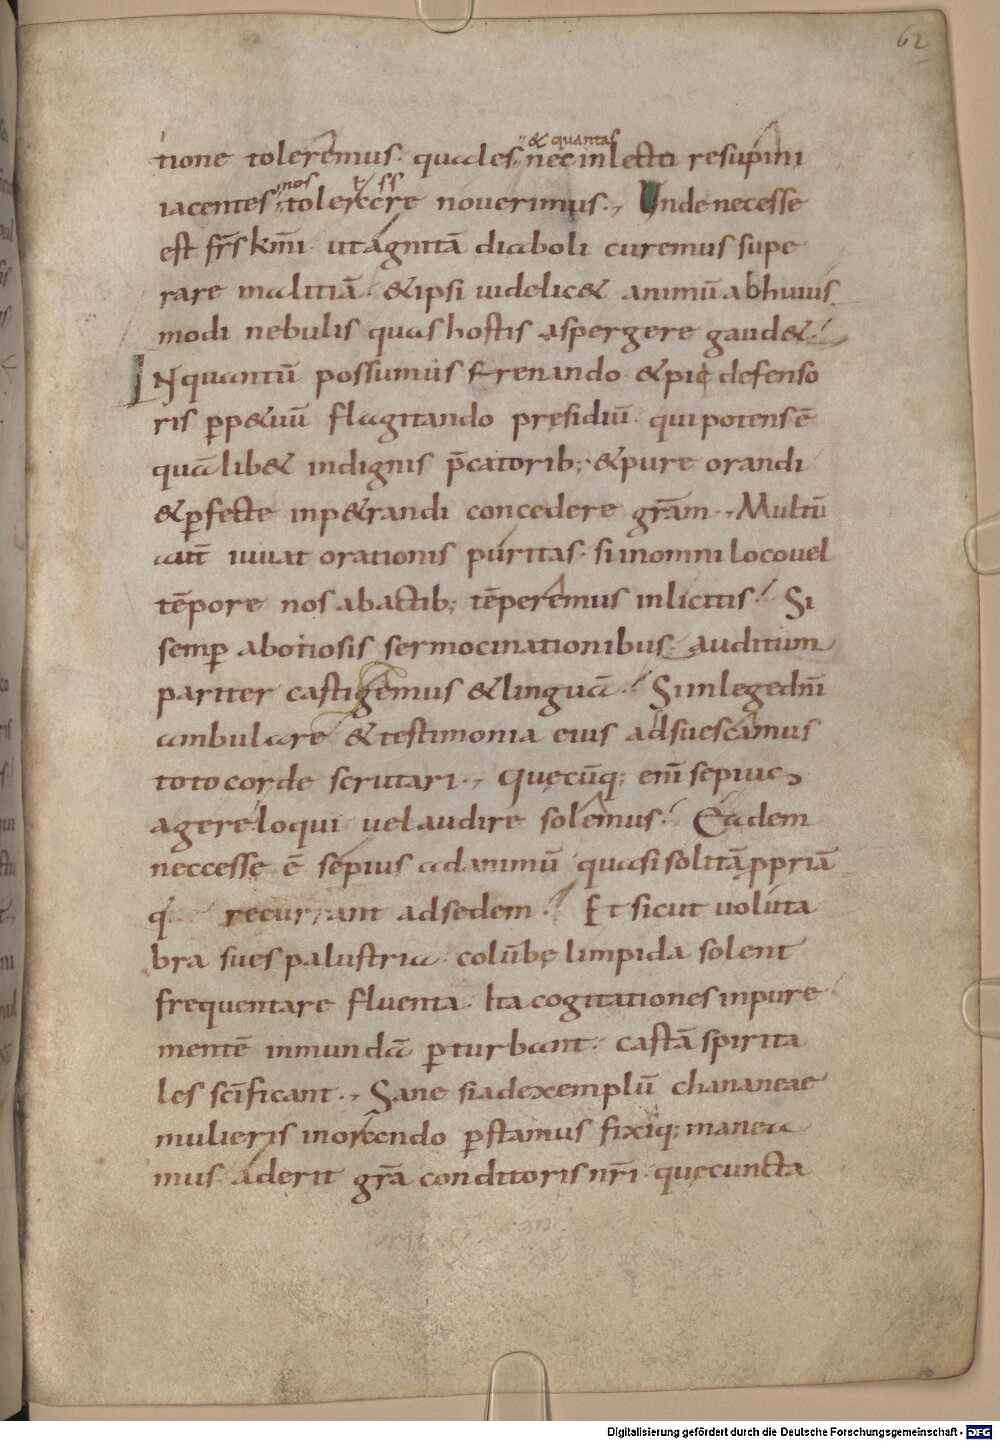 62
tione toleremus. quales &amp; quantas nec in lecto resupini
iacentes nos tolerare t ss nouerimus., Unde necesse
est fr̄s km̄i. ut agnitā diaboli curemus supe
rare malitiā. &amp; ipsi uidelic&amp; animū ab huius
modi nebulis quas hostis aspergere gaud&amp;.
IN quantū possumus frenando. &amp; pię defenso
ris ꝑp&amp;uū flagitando pręsidiū. qui potens ē
quālib&amp; indignis p̄catorib; &amp; pure orandi
&amp; ꝑfecte inp&amp;randi concedere grām., Multū
aut̄ iuuat orationis puritas. si in omni loco uel
tēpore nos ab actib; tēperemus inlicitis. Si
semꝑ ab otiosis sermocinationibus. auditum
pariter castigemus &amp; linguā. Si in lege dn̄i
ambulare &amp; testimonia eius adsuescamus
toto corde scrutari., Quęcūq; em̄ sepius
agere. loqui uel audire solemus. Eadem
neccesse ē sępius ad animū quasi solitā ꝓpriā
q recurrant ad sedem. Et sicut uoluta
bra sues palustria. colūbę limpida solent
frequentare fluenta. Ita cogitationes inpure
mentē inmundā ꝑturbant. castā spirita
les sc̄ificant., Sane si ad exemplū chananeae
mulieris in orando ꝑstamus fixiq; manea
mus. aderit grā conditoris nr̄i. quę cuncta
Digitalisierung gefördert durch die Deutsche Forschungsgemeinschaft - DFG